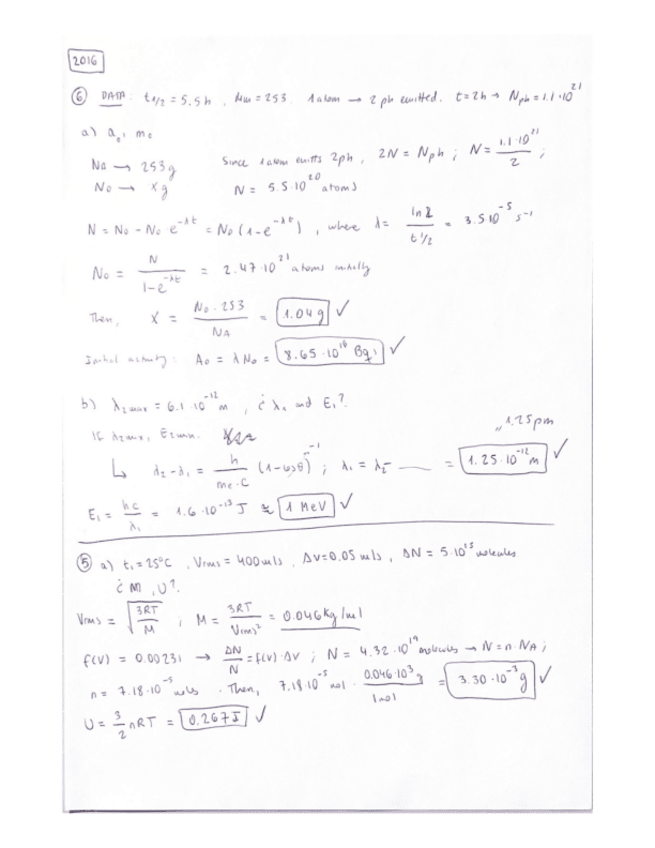 2016
⑥ DATA: t1/2 = 5.5h, Mm = 253. 1 atom → 2 ph emitted. t = 2h → Nph = 1.1·10^21
a) a0, m0
NA → 253g
N0 → x g
Since 1 atom emitts 2ph, 2N = Nph ; N = 1.1·10^21 / 2 ;
N = 5.5·10^20 atoms
N = N0 - N0 e^-λt = N0 (1-e^-λt), where λ = ln 2 / t1/2 = 3.5·10^-5 s^-1
N0 = N / (1-e^-λt) = 2.47·10^21 atoms initially
Then, X = N0·253 / NA = 1.04g ✓
Initial activity: A0 = λN0 = 8.65·10^16 Bq ✓
b) λ2max = 6.1·10^-12 m, ¿ λ1 and E1?
If λ2max, E2min.
" 1.25pm
↳ λ2-λ1 = h / (me·C) (1-cosθ)^-1 ; λ1 = λ2- — = 1.25·10^-12 m ✓
E1 = hc / λ1 = 1.6·10^-13 J ≈ 1 MeV ✓
⑤ a) t1 = 25°C, Vrms = 400m/s, ΔV = 0.05 m/s, ΔN = 5·10^15 molecules
¿ m, U?
Vrms = √(3RT / M) ; M = 3RT / (Vrms)² = 0.046kg/mol
f(v) = 0.00231 → ΔN / N = f(v)·ΔV ; N = 4.32·10^19 molecules → N = n·NA ;
n = 7.18·10^-5 mols. Then, 7.18·10^-5 mol · 0.046·10^3 g / 1mol = 3.30·10^-3 g ✓
U = 3/2 nRT = 0.267J ✓